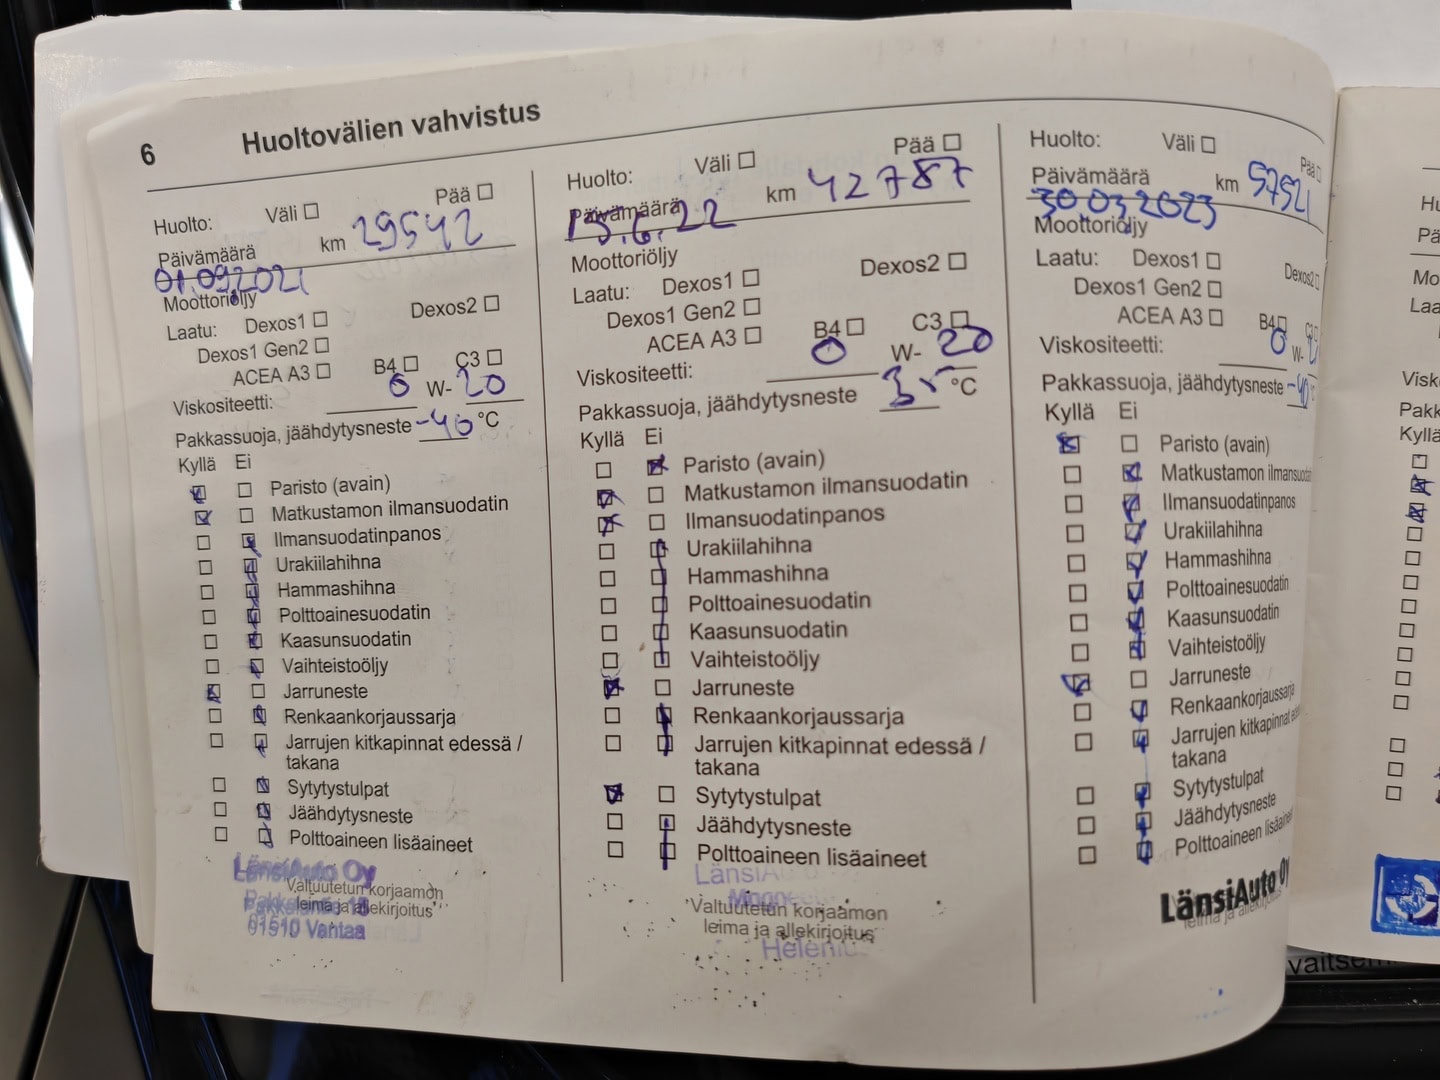 6 Huoltovälien vahvistus
Huolto: Väli Pää
Päivämäärä km 29542
01.09.2021
Moottoriöljy
Laatu: Dexos1 Dexos2
Dexos1 Gen2
ACEA A3 B4 C3
Viskositeetti: 0 W- 20
Pakkassuoja, jäähdytysneste -40 °C
Kyllä Ei
Paristo (avain)
Matkustamon ilmansuodatin
Ilmansuodatinpanos
Urakiilahihna
Hammashihna
Polttoainesuodatin
Kaasunsuodatin
Vaihteistoöljy
Jarruneste
Renkaankorjaussarja
Jarrujen kitkapinnat edessä /
takana
Sytytystulpat
Jäähdytysneste
Polttoaineen lisäaineet
LänsiAuto Oy
Valtuutetun korjaamon
leima ja allekirjoitus
01510 Vantaa
Huolto: Väli Pää
Päivämäärä km 42787
15.6.22
Moottoriöljy
Laatu: Dexos1 Dexos2
Dexos1 Gen2
ACEA A3 B4 C3
Viskositeetti: 0 W- 20
Pakkassuoja, jäähdytysneste °C
Kyllä Ei
Paristo (avain)
Matkustamon ilmansuodatin
Ilmansuodatinpanos
Urakiilahihna
Hammashihna
Polttoainesuodatin
Kaasunsuodatin
Vaihteistoöljy
Jarruneste
Renkaankorjaussarja
Jarrujen kitkapinnat edessä /
takana
Sytytystulpat
Jäähdytysneste
Polttoaineen lisäaineet
LänsiAuto
Valtuutetun korjaamon
leima ja allekirjoitus
Huolto: Väli Pää
Päivämäärä km 57521
30.03.2023
Moottoriöljy
Laatu: Dexos1 Dexos2
Dexos1 Gen2
ACEA A3 B4 C3
Viskositeetti: 0 W-
Pakkassuoja, jäähdytysneste -40
Kyllä Ei
Paristo (avain)
Matkustamon ilmansuodatin
Ilmansuodatinpanos
Urakiilahihna
Hammashihna
Polttoainesuodatin
Kaasunsuodatin
Vaihteistoöljy
Jarruneste
Renkaankorjaussarja
Jarrujen kitkapinnat
takana
Sytytystulpat
Jäähdytysneste
Polttoaineen
LänsiAuto Oy
leima ja